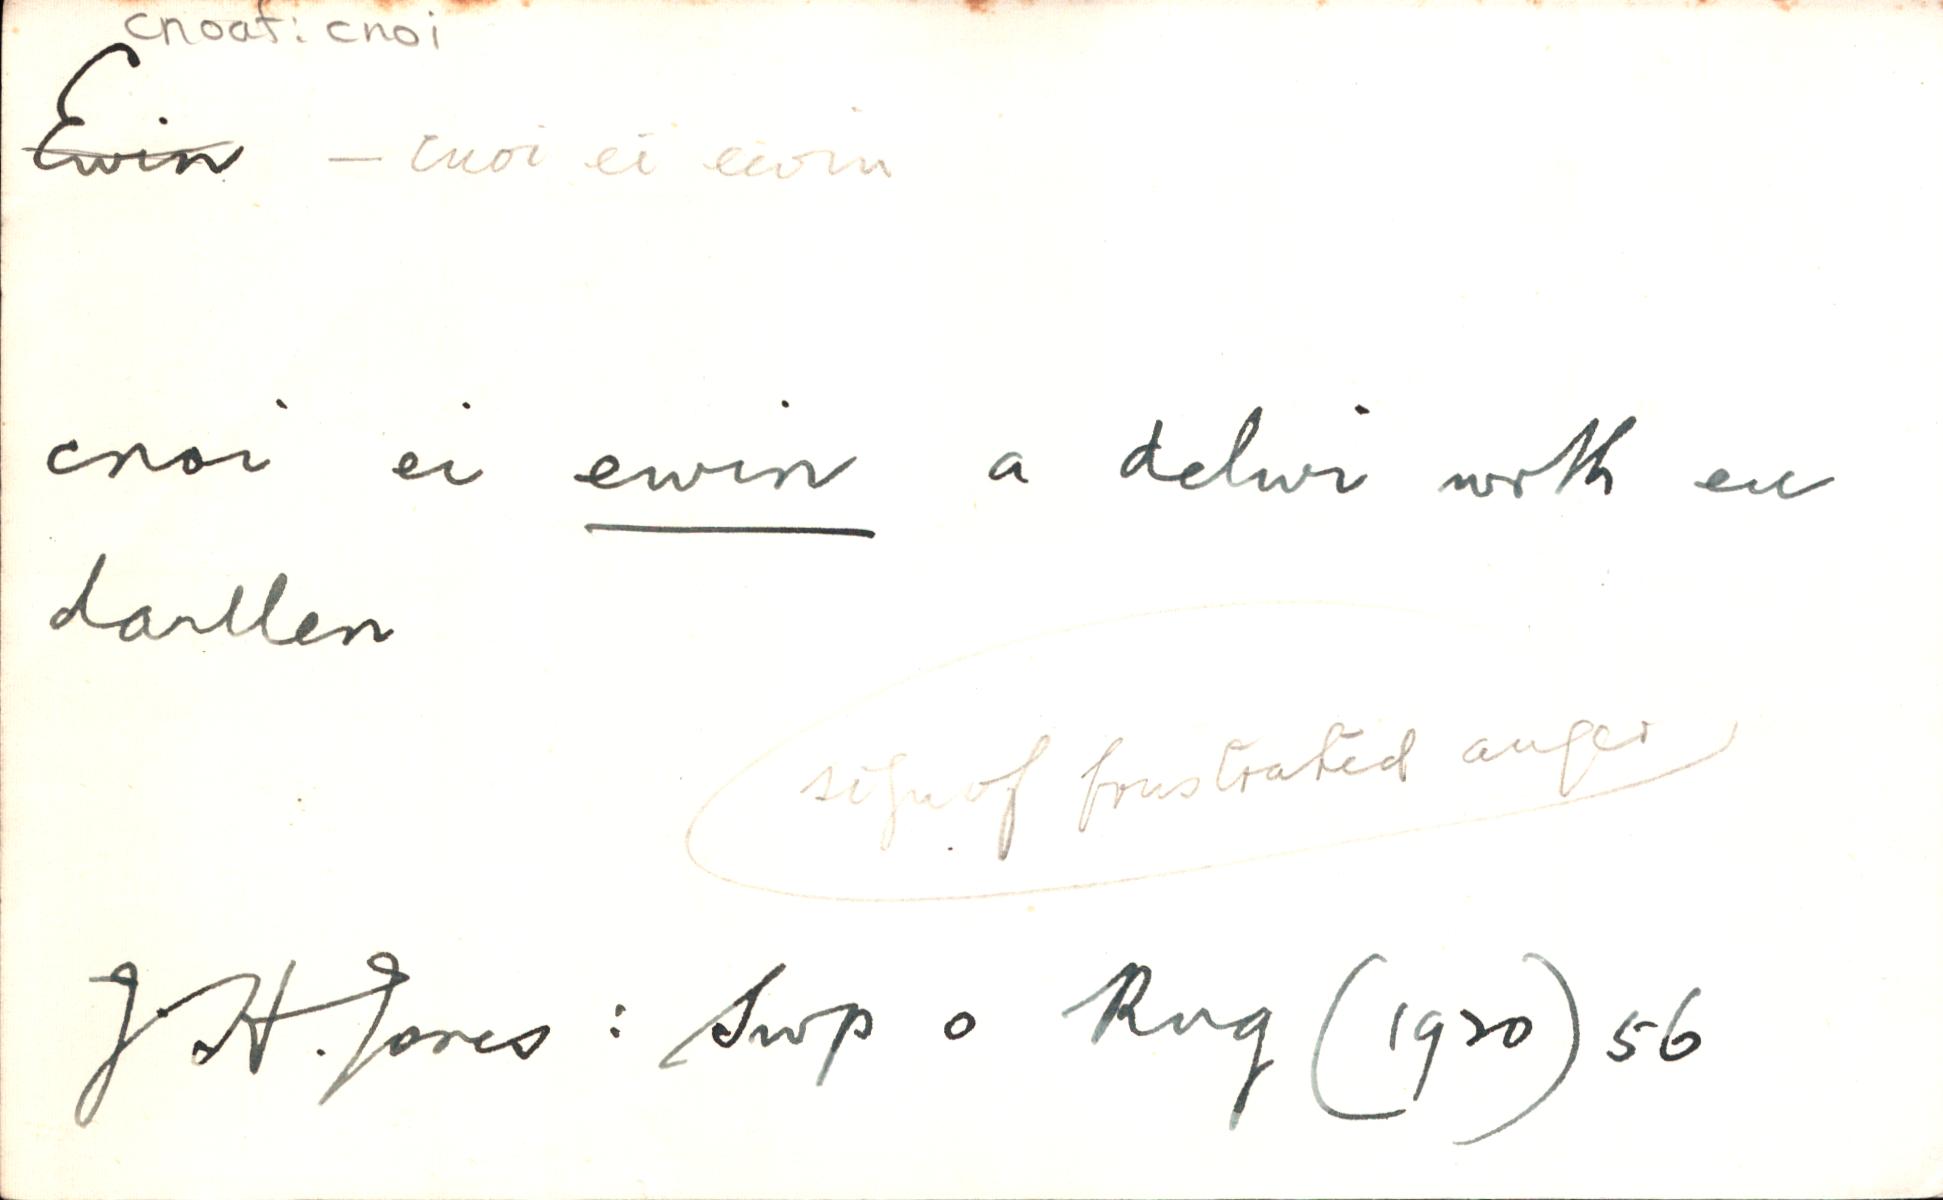 cnoaf: cnoi
Ewin — cnoi ei ewin
cnoi ei ewin a delwi wrth eu
darllen
sign of frustrated anger
J. H. Jones : Swp o Rug (1920) 56